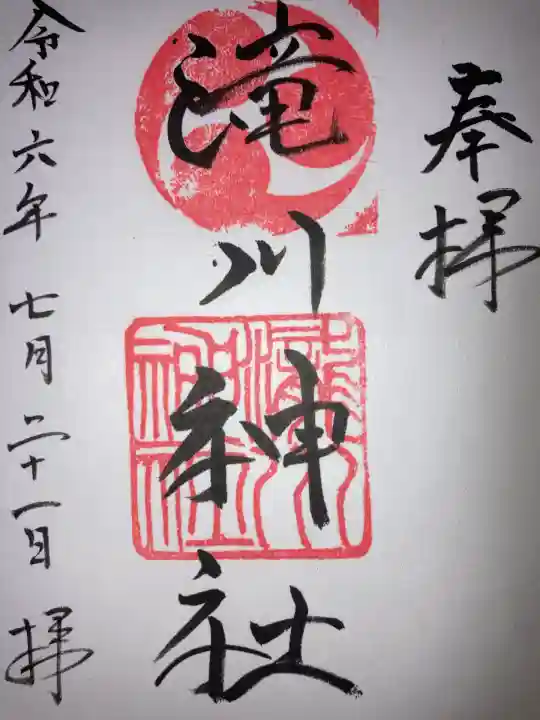 奉拝
滝川神社
瀧川神社
令和六年 七月 二十一日 拝